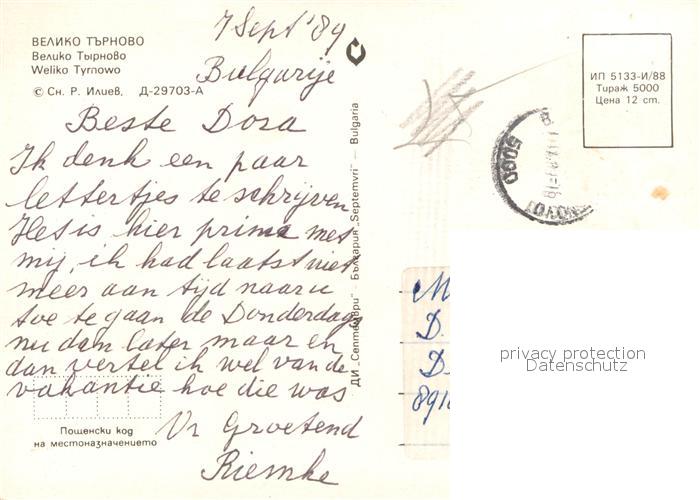 7 Sept '89
Bulgarije
ВЕЛИКО ТЪРНОВО
Велико Тырново
Weliko Tyrnowo
© Сн. Р. Илиев, Д-29703-А
Beste Dora
Ik denk een paar
lettertjes te schrijven
Het is hier prima met
mij, ik had laatst niet
meer aan tijd naar u
toe te gaan de Donderdags
nu dan later maar en
dan vertel ik wel van de
vakantie hoe die was
Vr Groetend
Riemke
Пощенски код
на местоназначението
ДИ „Септември" – България „Septemvri" – Bulgaria
ИП 5133-И/88
Тираж 5000
Цена 12 ст.
5000
M
D.
D.
8918
privacy protection
Datenschutz